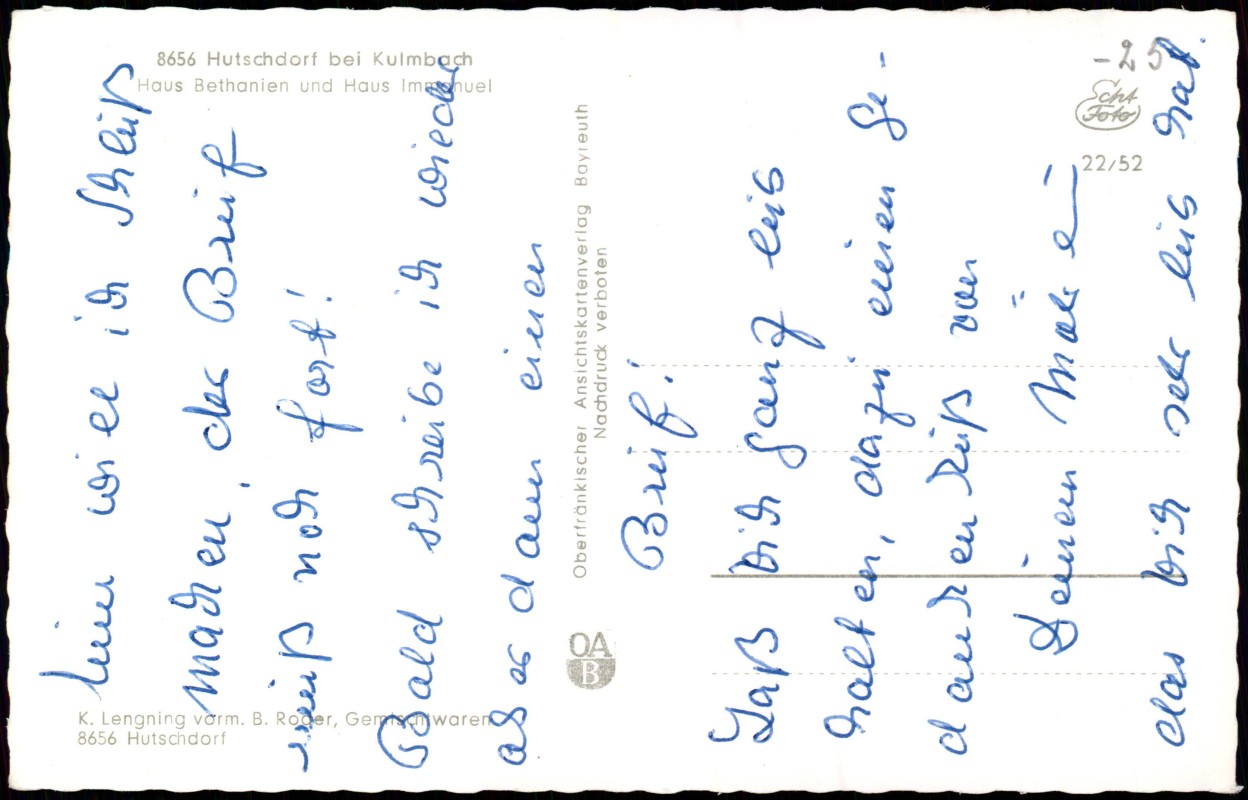 8656 Hutschdorf bei Kulmbach
Haus Bethanien und Haus Immanuel
K. Lengning vorm. B. Roder, Gemischtwaren
8656 Hutschdorf
Oberfränkischer Ansichtskartenverlag Bayreuth
Nachdruck verboten
OA
B
Echt
Foto
22/52
-25
Nun will ich Schluß
machen, der Brief
muß noch fort!
Bald schreibe ich wieder
dann einen
Brief!
Laß Dich ganz lieb
halten, dazu einen Ge-
dankenkuß von
Deinem
das Dich sehr lieb hat.